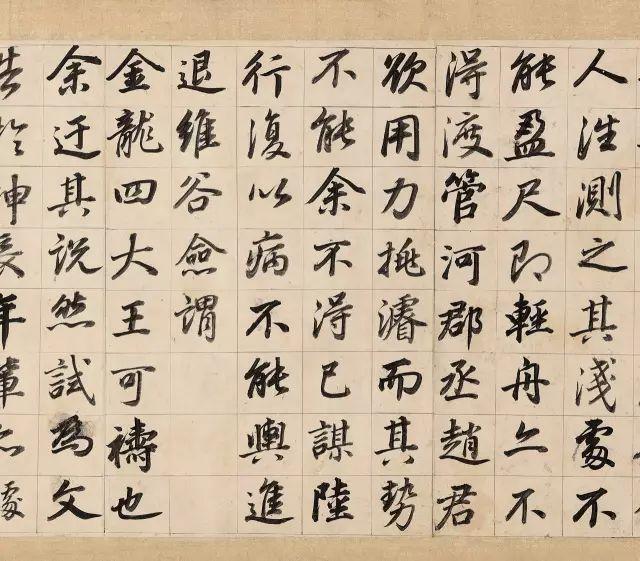 人往測之其淺處不
能盈尺即輕舟亦不
得渡管河郡丞趙君
欲用力挑濬而其勢
不能余不得已謀陸
行復以病不能輿進
退維谷僉謂
金龍四大王可禱也
余迂其說然試為文
告於神